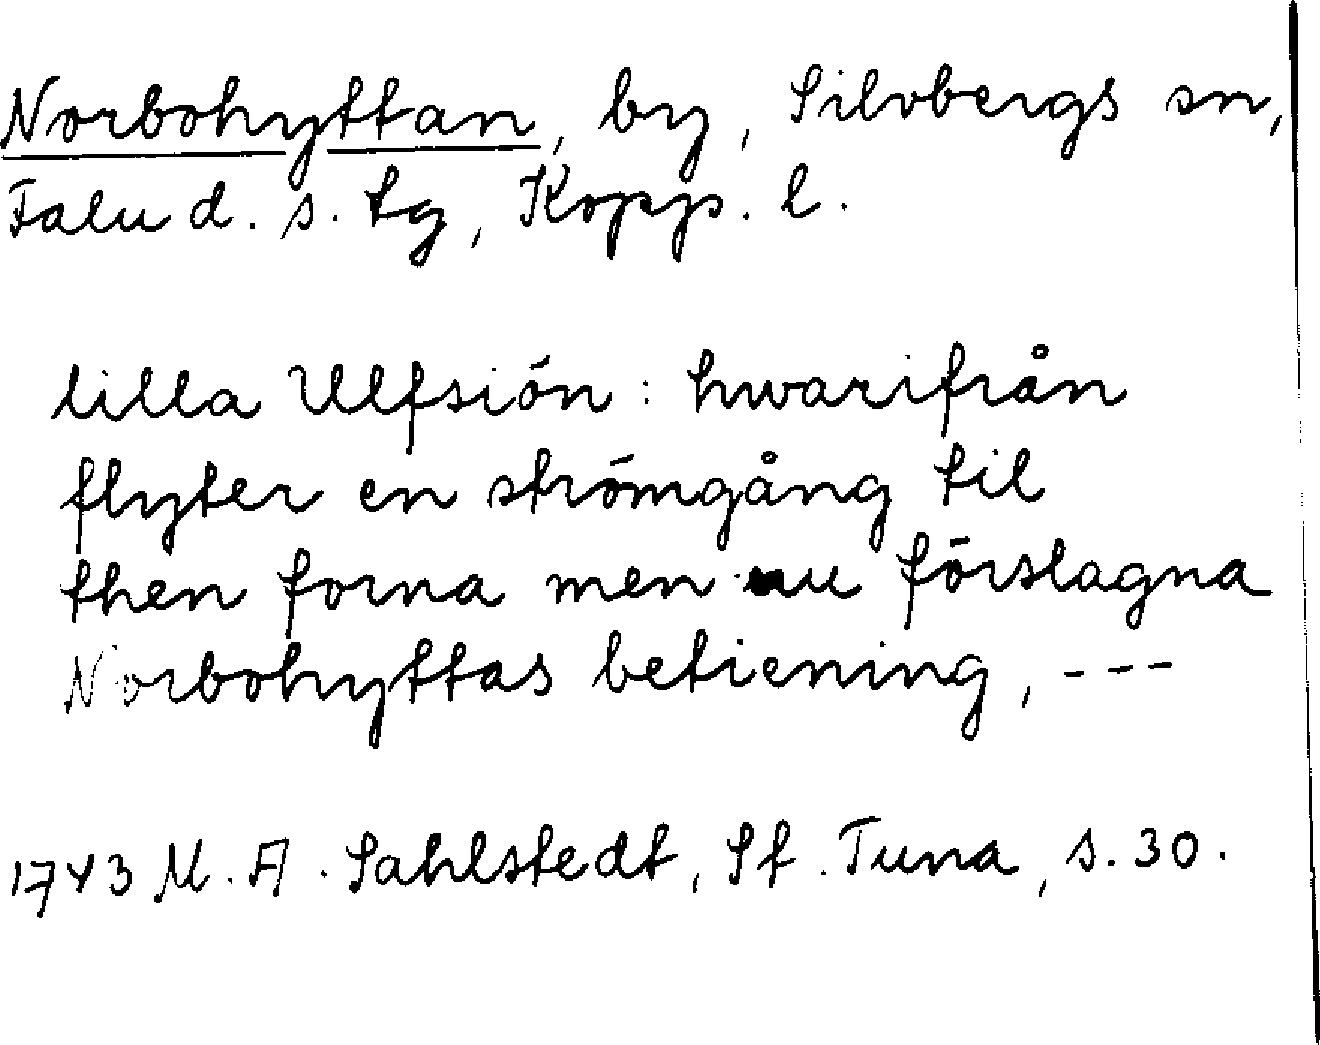 Norbohyttan, by, Silvbergs sn,
Falu d. s. tg, Kopp. l.
lilla Ulfsión: hwarifrån
flyter en strómgång til
then forna men nu förslagna
Norbohyttas betiening, ---
1743 M. A. Sahlstedt, St. Tuna, s. 30.